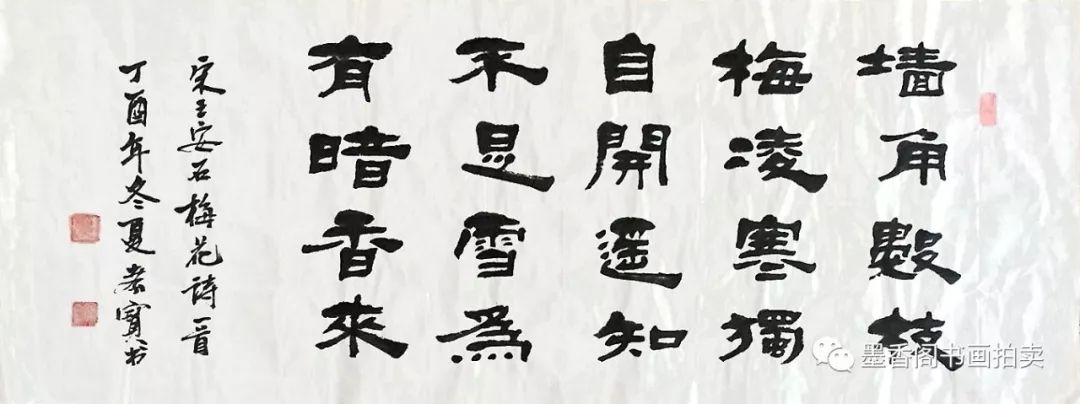 墙角數枝
梅凌寒獨
自開遥知
不是雪為
有暗香來
宋王安石梅花詩一首
丁酉年冬夏老寶书
墨香阁书画拍卖